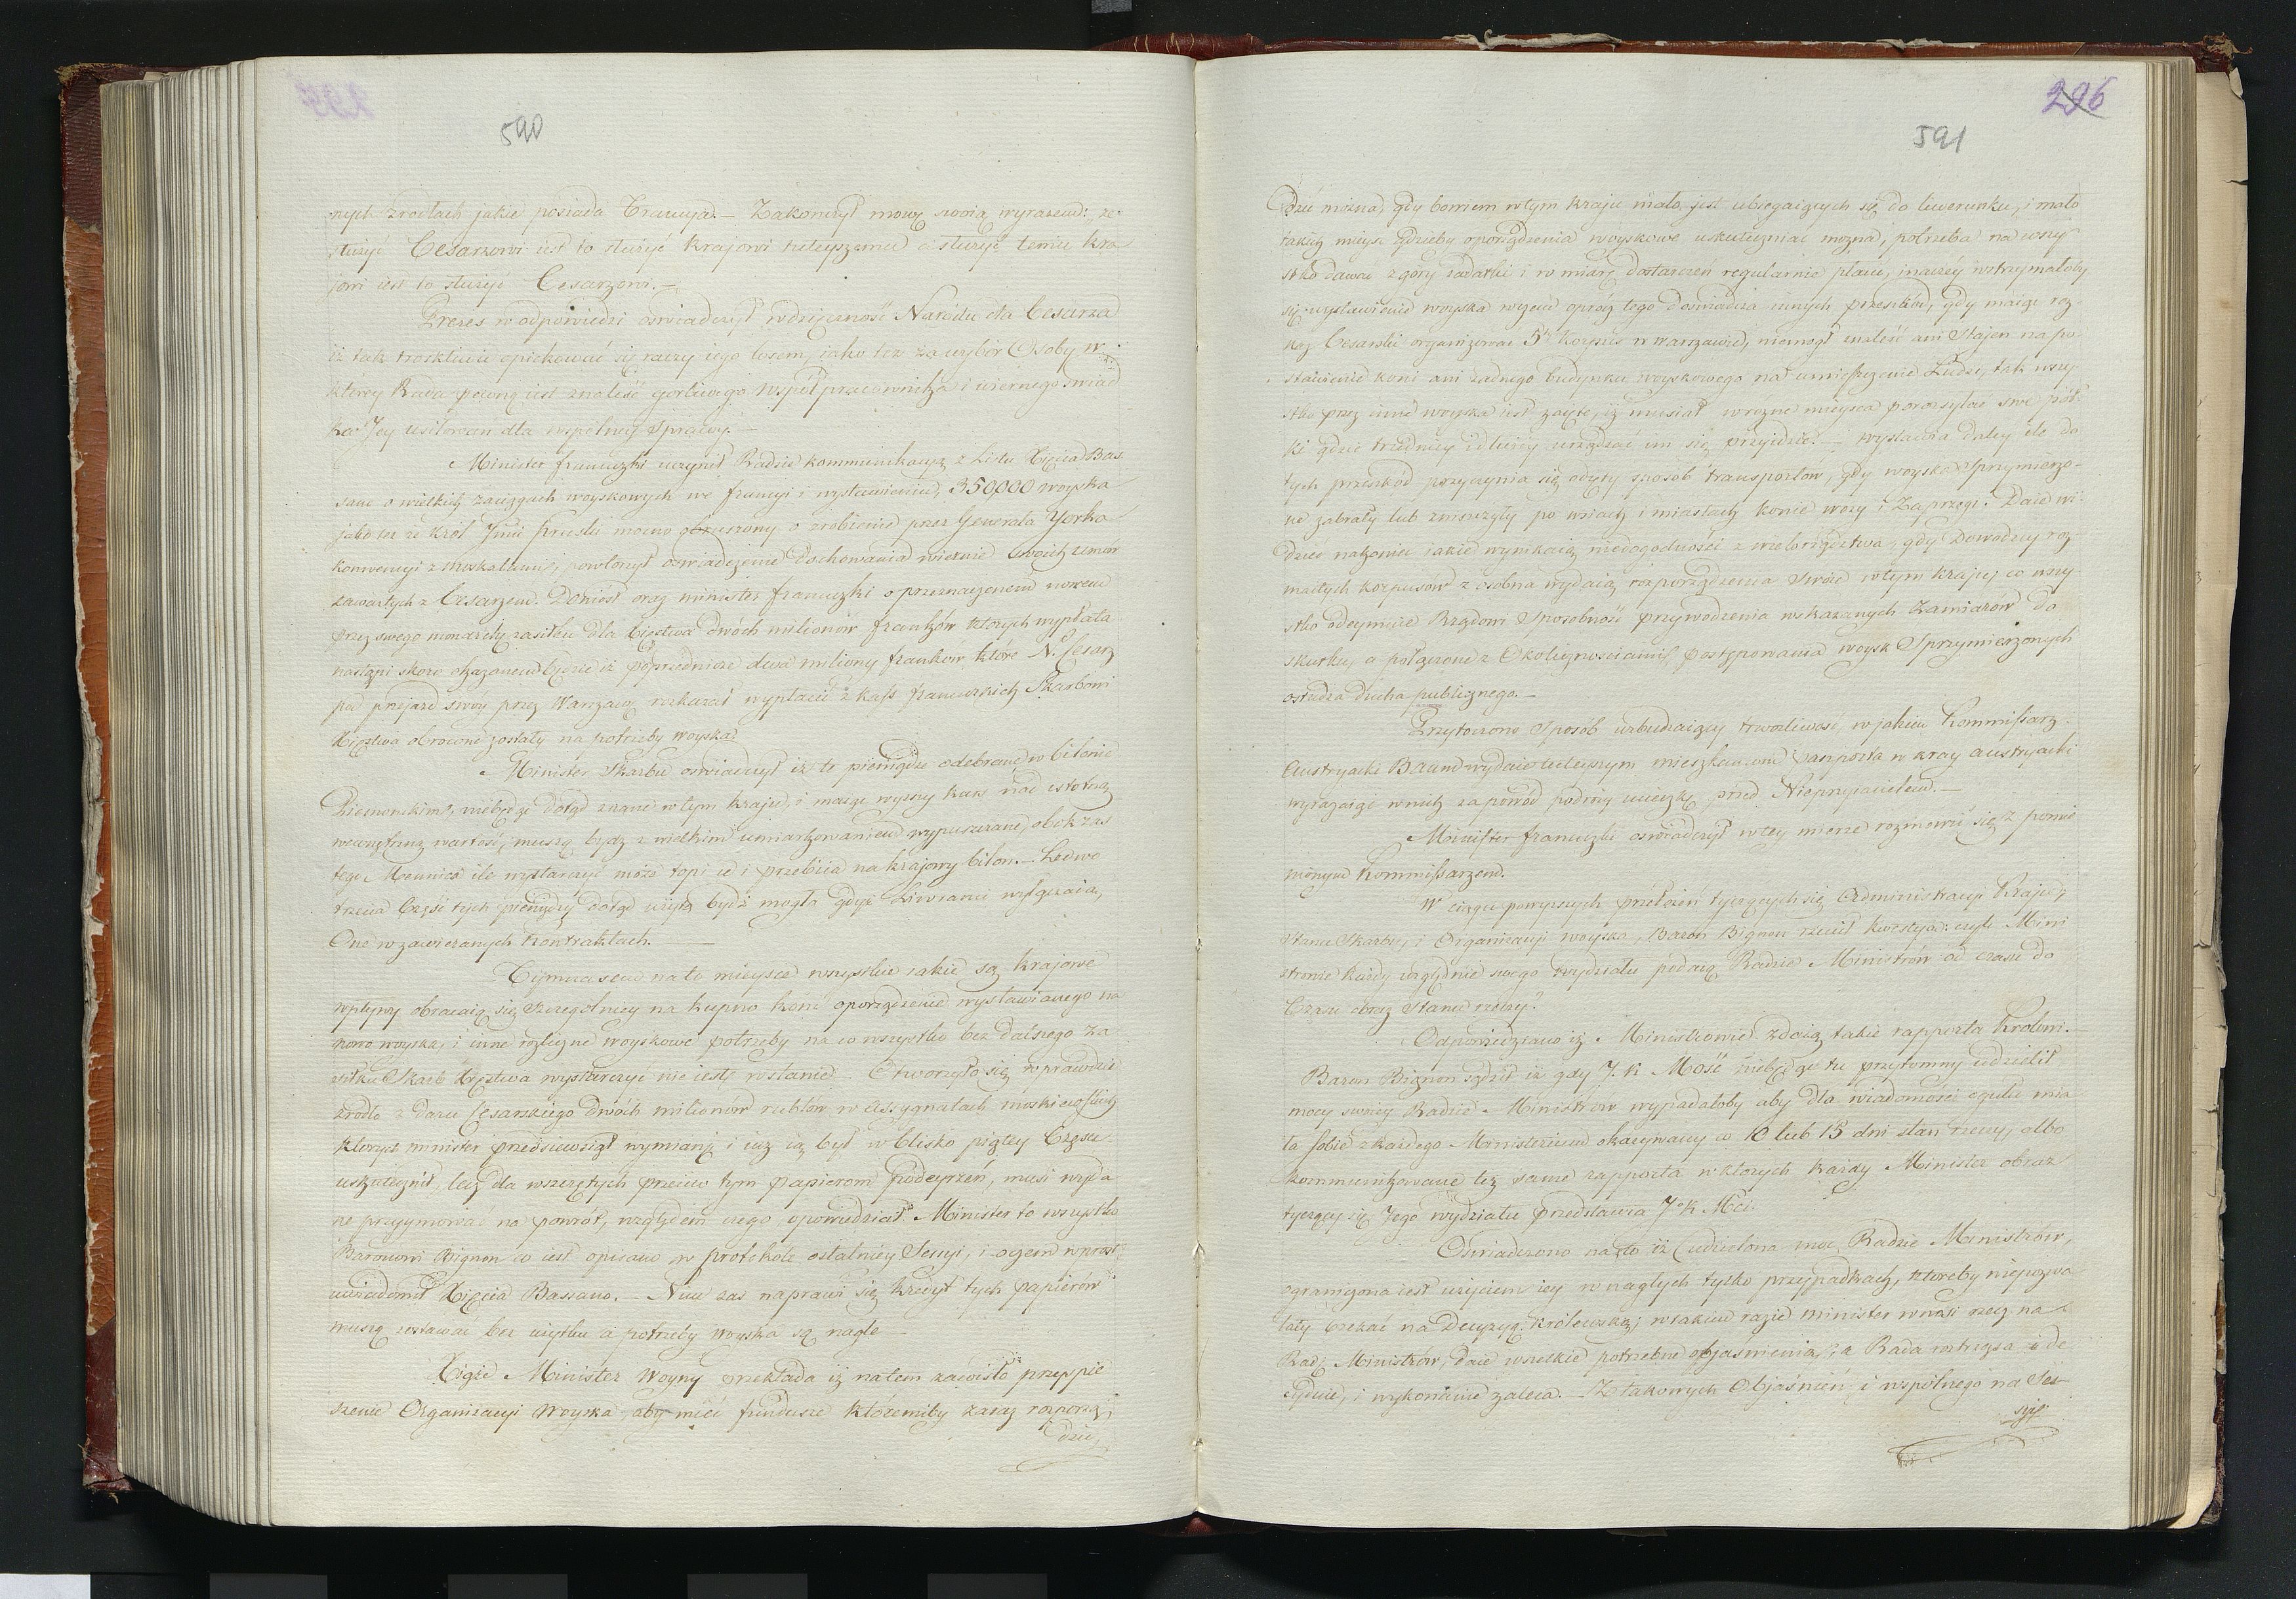 590
nych źrodłach jakie posiada Francya. — Zakończył mowę swoią wyrazem: że
służyć Cesarzowi iest to służyć krajowi tuteyszemu a służyć temu kra
jowi iest to służyć Cesarzowi. —
Prezes w odpowiedzi oświadczył wdzięczność Narodu dla Cesarza
iż tak troskliwie opiekować się raczy iego losem, jako też za wybór Osoby w
ktorey Rada pewną iest znaleść gorliwego współpracownika i wiernego świad
ka Jey usiłowań dla wspólney sprawy. —
Minister francuzki uczynił Radzie kommunikacyą z Listu Xięcia Bas
sano o wielkich zaciągach woyskowych we francyi i wystawieniu, 350,000 woyska
jako też że król Jmć pruski mocno obruszony o zrobienie przez Generała Yorka
konwencyi z Moskalami, powtorzył oświadczenie Dochowania wiernie swoich umów
zawartych z Cesarzem. Doniosł oraz minister francuzki o przeznaczeniu nowem
przez swego monarchę zasiłku dla Xięstwa dwóch milionów franków ktorych wypłata
nastąpi skoro okazanem będzie iż poprzednicze dwa miliony frankow które N. Cesarz
pod przejazd swóy przez Warszawę rozkazał wypłacić z kass francuzkich Skarbowi
Xięstwa obrocone zostały na potrzeby woyska.
Minister Skarbu oświadczył iż te pieniądze odebrane w bilonie
Piemonckim, niebędąc dotąd znane w tym kraju, i maiąc wyższy kurs nad istotną
wewnętrzną wartość, muszą bydź z wielkim umiarkowaniem wypuszczane, obok zas
tego Mennica ile wystarczyć może topi ie i przebiia na krajowy bilon. — Ledwo
trzecia Część tych pieniędzy dotąd użytą bydź mogła gdyż Liweranci wyłączaią,
One w zawieranych kontraktach. —
Tymczasem na to mieysce wszystkie iakie są krajowe
wpływy obracaią się szczegolniey na kupno koni oporządzenie wystawianego na
nowo woyska, i inne rozliczne woyskowe potrzeby na co wszystko bez dalszego za
siłku Skarb Xięstwa wystarczyć nie iest w stanie. — Otworzyło się wprawdzie
źrodło z daru Cesarskiego dwóch milionów rublów w assygnatach moskiewskich
ktorych minister przedsiewziął wymianę i iuż ią był w blisko piątey Części
uskutecznił, lecz dla wszczętych przeciw tym papierom Podeyrzeń, musi wyda
ne przyymować na powrót, względem czego opowiedział Minister to wszystko
Baronowi Bignon co iest opisano w protokóle ostatniey Sessyi, i o czem wprost
uwiadomił Xięcia Bassano. — Nim zas naprawi się kredyt tych papierów
muszą zostawać bez użytku a potrzeby woyska są nagłe —
Xiąże Minister Woyny przekłada iż na tem zawisło przyspie
szenie Organizacyi Woyska, aby mieć fundusze któremiby zaraz rozporzą
dzić
296
591
Dzić można, gdy bowiem w tym kraju mało jest ubiegaiących się do liwerunku, i mało
takich mieysc gdzieby oporządzenia woyskowe uskuteczniać można, potrzeba na wszy
stko dawać z góry zadatki i w miarę dostarczeń regularnie płacić, inaczey wstrzymałoby
się wystawienie woyska więcey opróz tego doświadcza innych przeszkód, gdy maiąc roz
kaz Cesarski organizować 5ty Korpus w warszawie, niemogł znaleść ani Stajen na po
stawienie koni ani żadnego budynku woyskowego na umieszczenie Ludzi, tak wszy
stko przez inne woyska iest zaięte, iż musiał w rożne mieysca porozsyłać swe pół
ki gdzie trudniey i dłużey urządzać im się przyidzie. — wystawia daley ile do
tych przeszkód przyczynia się odięty sposób transportow, gdy woyska Sprzymierzo
ne zabrały lub zniszczyły po wsiach i miastach konie wozy i Zaprzęgi. Daie wi
dzieć nakoniec iakie wynikaią niedogodności z wielorządztwa, gdy Dowodzcy roz
maitych korpusow z osobna wydaią rozporządzenia swoie w tym kraju; co wszy
stko odeymuie Rządowi Sposobność przywodzenia wskazanych Zamiarów do
skutku, a połączone z Okolicznościami postępowania woysk Sprzymierzonych
ostudza ducha publicznego. —
Przytoczono Sposób wzbudzaiący trwożliwość, w jakim Kommissarz
Austryacki Baum wydaie tuteyszym mieszkańcom paszporta w kray Austryacki
wyrażaiąc w nich za powód podróży ucieczkę przed Nieprzyiacielem. —
Minister francuzki oświadczył w tey mierze rozmowić się z pomie
nionym Kommissarzem.
W ciągu powyższych przełożeń tyczących się Administracyi Kraju,
Stanu Skarbu, i Organizacyi woyska, Baron Bignon rzucił kwestyą: czyli Mini
strowie każdy względnie swego wydziału podaią Radzie Ministrów od czasu do
Czasu obraz stanu rzeczy?
Odpowiedziano iż Ministrowie zdaią takie rapporta Krolowi. —
Baron Bignon sądził iż gdy J. K. Mość niebędąc tu przytomny udzielił
mocy swoiey Radzie Ministrow wypadałoby aby dla wiadomości ogulu mia
ła sobie z każdego Ministerium okazywany co 10 lub 15 dni stan rzeczy, albo
kommunikowane też same rapporta w ktorych każdy Minister obraz
tyczący się Jego wydziału przedstawia J. K. Mci.
Oświadczono na to iż udzielona moc Radzie Ministrów,
ograniczona iest użyciem iey w nagłych tylko przypadkach, ktoreby niepozwa
lały czekać na Decyzyą królewską; w takim razie minister wnosi rzecz na
Radę Ministrów, daie wszelkie potrzebne objaśnienia, a Rada roztrząsa i de
cyduie, i wykonanie zaleca. — Z takowych Objaśnień i wspólnego na Ses-
syi